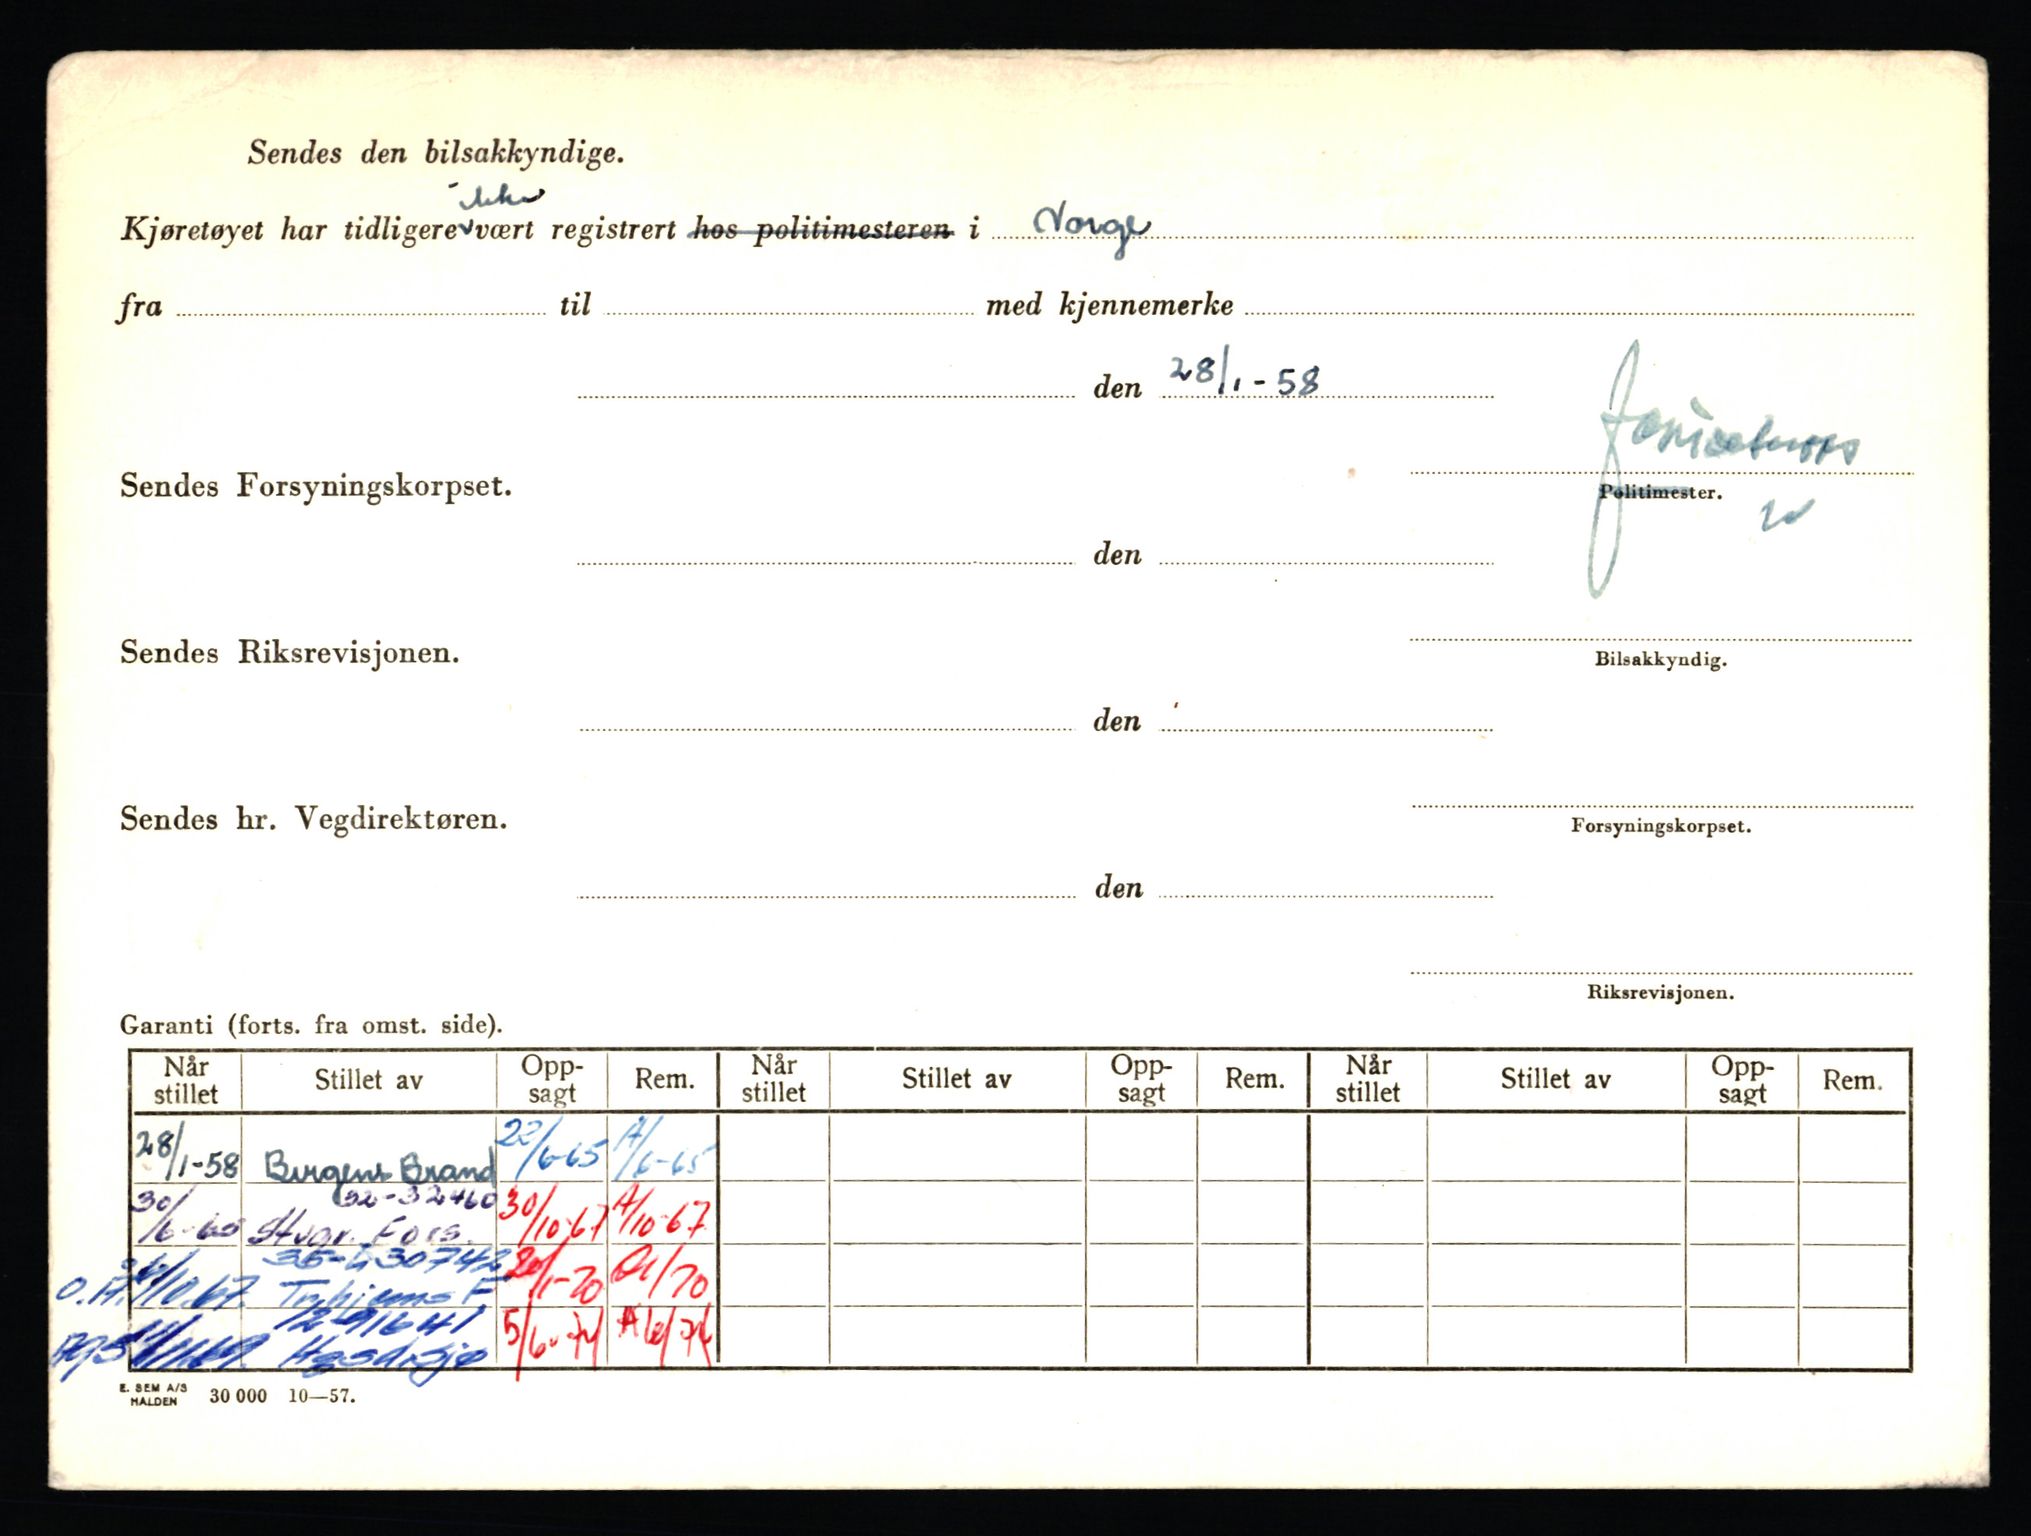 Sendes den bilsakkyndige.
ikke
Kjøretøyet har tidligere vært registrert hos politimesteren i Norge
fra til med kjennemerke
den 28/1-58
Sendes Forsyningskorpset.
Politimester.
den
Sendes Riksrevisjonen.
Bilsakkyndig.
den
Sendes hr. Vegdirektøren.
Forsyningskorpset.
den
Riksrevisjonen.
Garanti (forts. fra omst. side).
Når stillet Stillet av Opp- sagt Rem. Når stillet Stillet av Opp- sagt Rem. Når stillet Stillet av Opp- sagt Rem.
28/1-58 Bergens Brand 22/6-65 A/6-65
32-32460
30/6-65 Stvgr. Fors. 30/10-67 A/10-67
35-430742
/10.67. 20/1-70 /70
1291641
5/6-74 A6/74
E. SEM A/S
HALDEN 30 000 10—57.